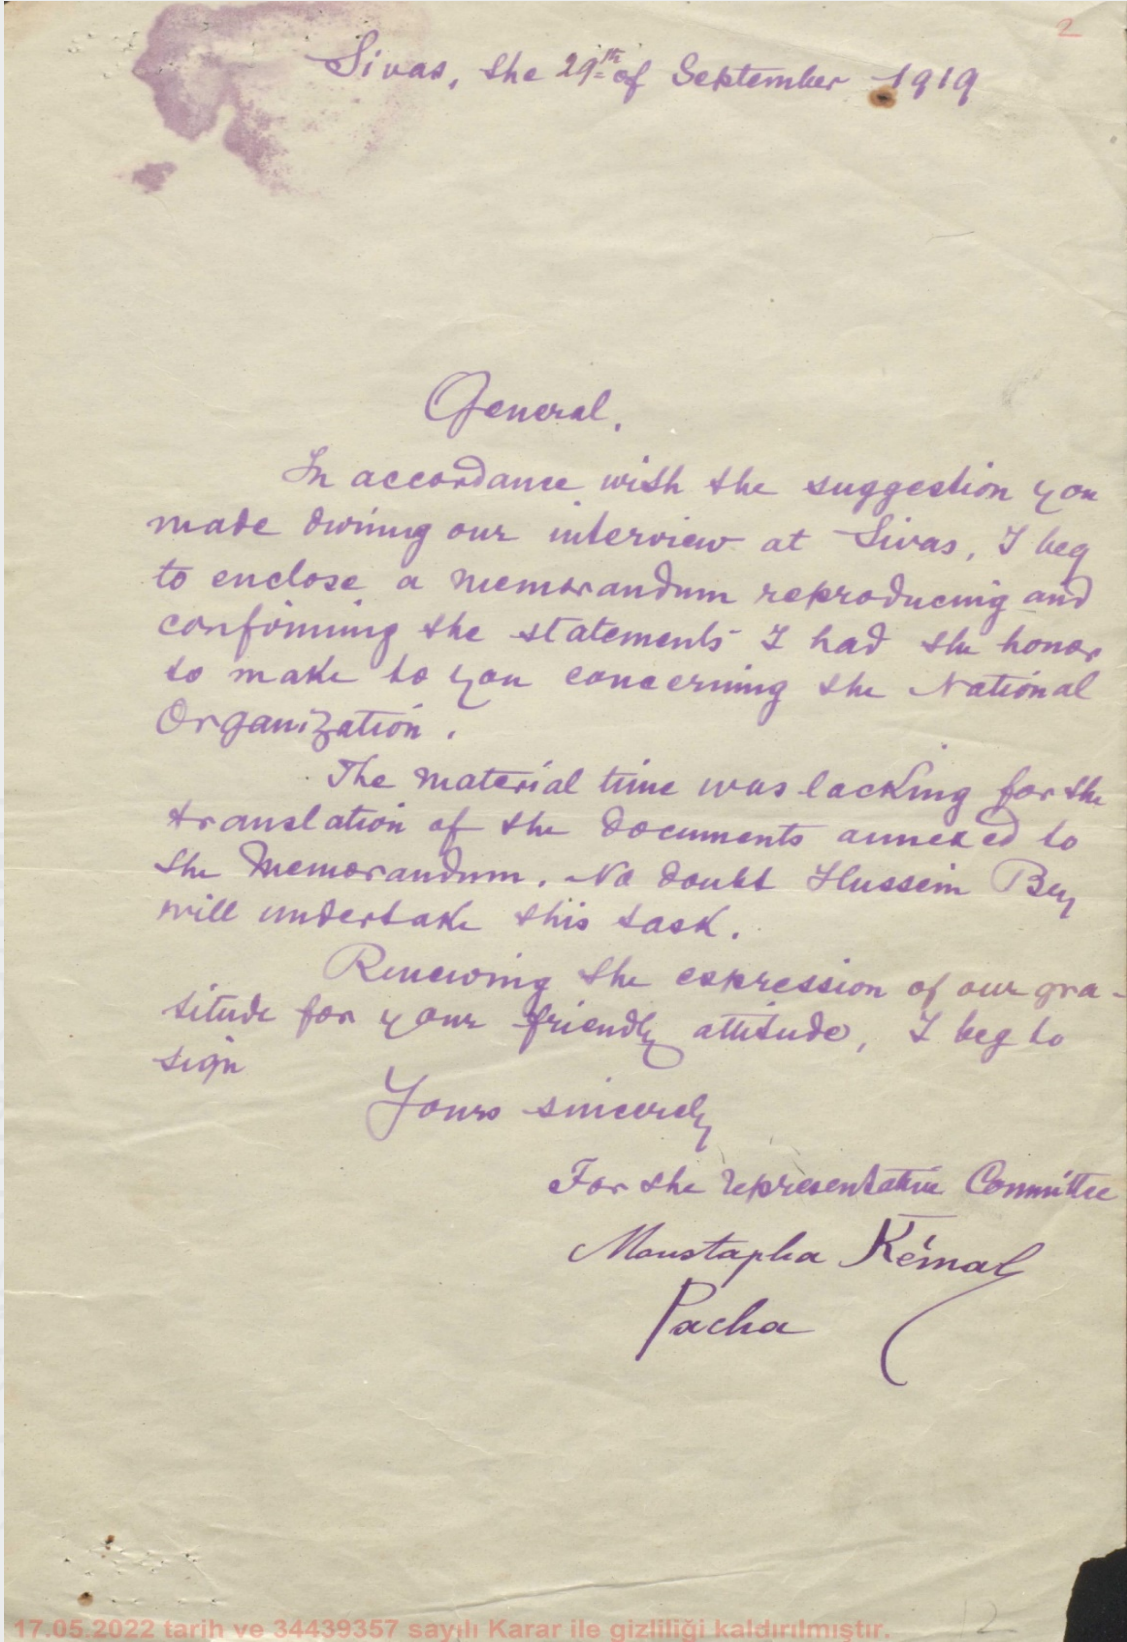 2
Sivas, the 29th of September 1919
General,
In accordance with the suggestion you
made during our interview at Sivas, I beg
to enclose a memorandum reproducing and
confirming the statements I had the honor
to make to you concerning the National
Organization.
The material time was lacking for the
translation of the documents annexed to
the Memorandum. No doubt Hussein Bey
will undertake this task.
Renewing the expression of our gra-
titude for your friendly attitude, I beg to
sign
Yours sincerely
For the representative Committee
Moustapha Kémal
Pacha
12
17.05.2022 tarih ve 34439357 sayılı Karar ile gizliliği kaldırılmıştır.